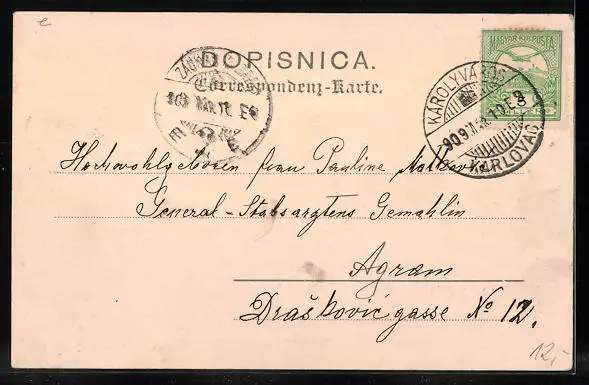 DOPISNICA.
Correspondenz-Karte.
MAGYAR KIR. POSTA
KÁROLYVÁROS
KARLOVAC
Hochwohlgeboren Frau Pauline
General-Stabsarztens Gemahlin
Agram
Draškovićgasse No 12.
12,-